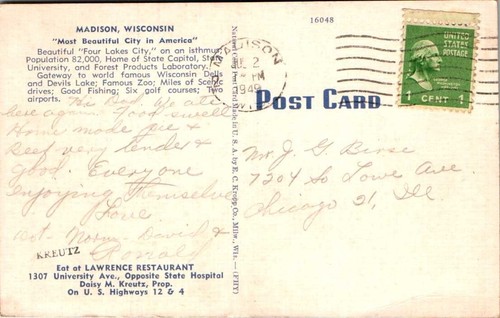 MADISON, WISCONSIN
"Most Beautiful City in America"
Beautiful "Four Lakes City," on an isthmus,
Population 82,000, Home of State Capitol, State
University, and Forest Products Laboratory.
Gateway to world famous Wisconsin Dells
and Devils Lake; Famous Zoo; Miles of Scenic
drives; Good Fishing; Six golf courses; Two
airports.
Hi Dad. We ate
here again. Food swell
Home made pie &
Beef very tender &
Good. Everyone
enjoying themselves
Love
Art Norm David &
KREUTZ
Eat at LAWRENCE RESTAURANT
1307 University Ave., Opposite State Hospital
Daisy M. Kreutz, Prop.
On U. S. Highways 12 & 4
Natural Post Card Made in U. S. A. by E. C. Kropp Co., Milw., Wis.
16048
MADISON
2
PM
1949
WIS.
POST CARD
UNITED STATES
POSTAGE
1 CENT 1
Mr J. G. Birse
7204 So Lowe Ave
Chicago 21, Ill